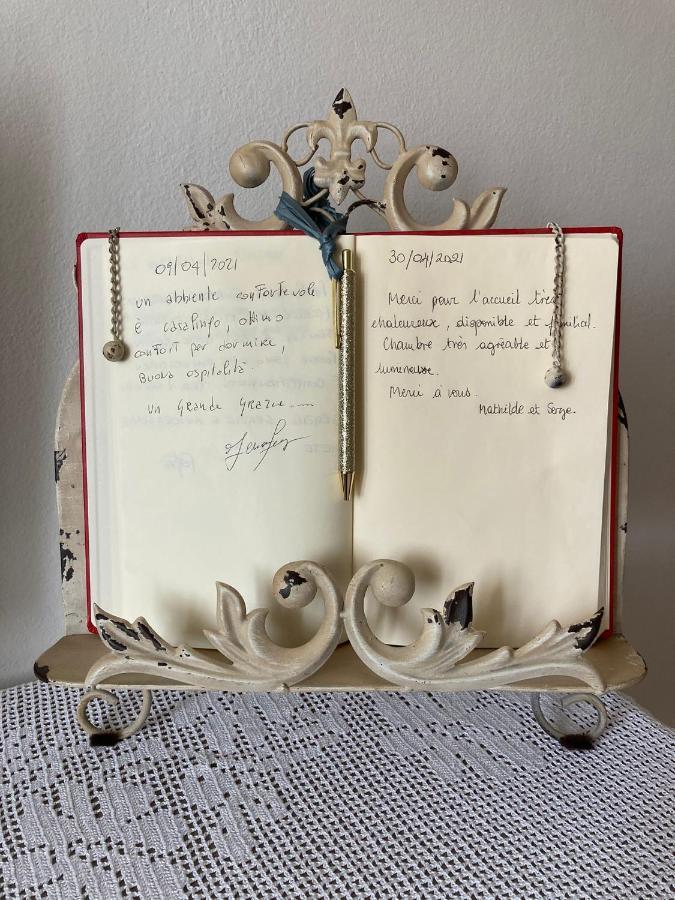 09/04/2021
un abbiente confortevole
è casalingo, ottimo
confort per dormire,
Buona ospitalità.
un Grande Grazie ----
30/04/2021
Merci pour l'accueil très
chaleureux, disponible et familial.
Chambre très agréable et
lumineuse.
Merci à vous.
Mathilde et Serge.